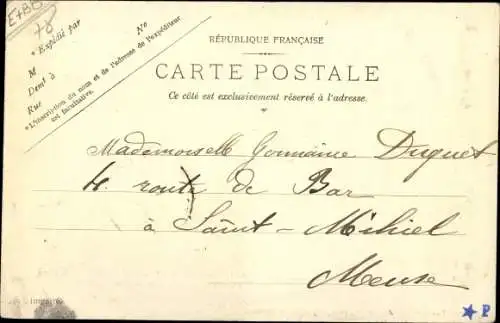 E+BB
78
N°
* Expédié par
M
Demt à
Rue
*L'inscription du nom et de l'adresse de l'expéditeur
est facultative.
RÉPUBLIQUE FRANÇAISE
CARTE POSTALE
Ce côté est exclusivement réservé à l'adresse.
Mademoiselle Germaine Duguet
4. route de Bar
à Saint-Mihiel
Meuse
★ P